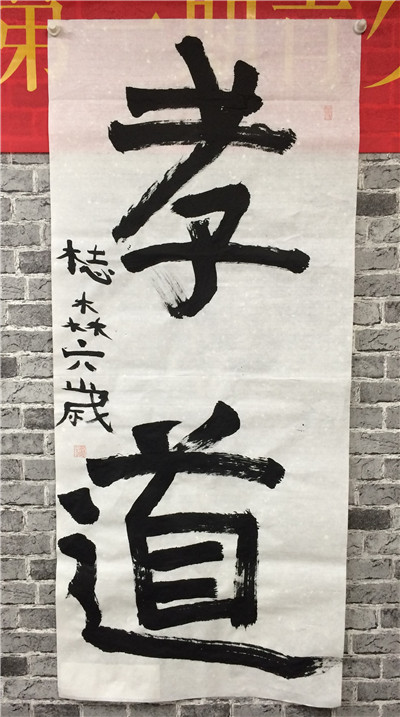 孝道
梽森六歲